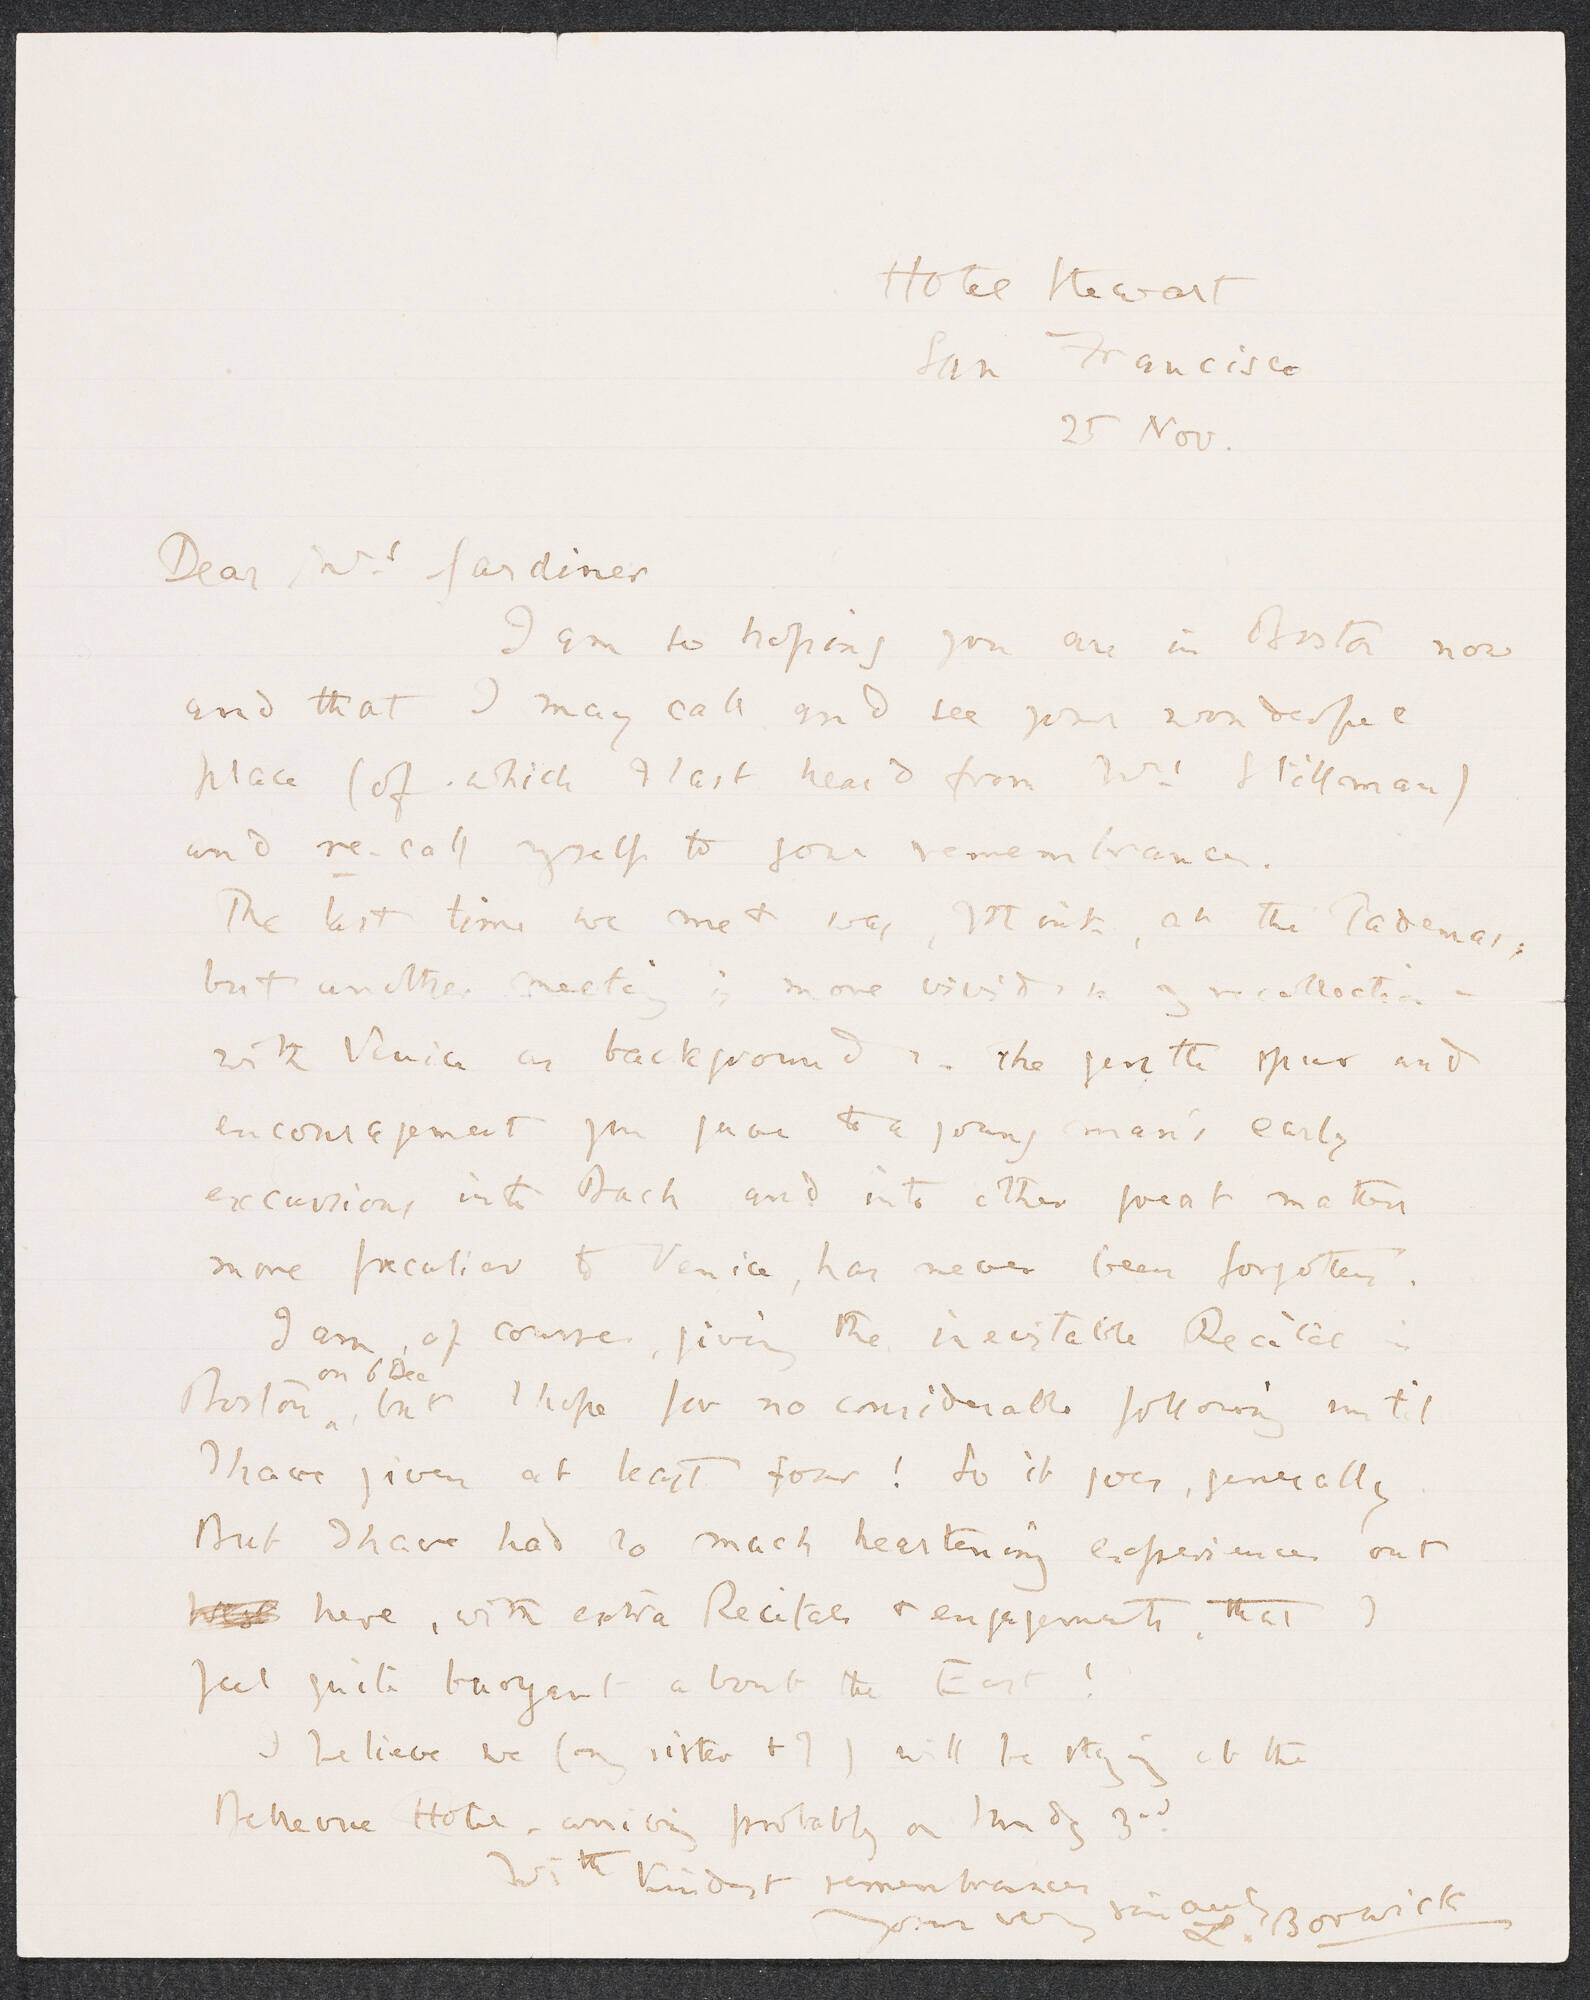 Hotel Stewart
San Francisco
25 Nov.
Dear Mrs Gardiner
I am so hoping you are in Boston now
and that I may call and see your wonderful
place (of which I last heard from Mrs Stillman)
and re-call myself to your remembrance.
The last time we met was, I think, at the Tademas;
but another meeting is more vivid in my recollection -
with Venice as background :- the gentle spur and
encouragement you gave to a young man's early
excursions into Bach and into other great matters
more peculiar to Venice, has never been forgotten.
I am, of course, giving the inevitable Recital in
Boston on 6 Dec, but I hope for no considerable following until
I have given at least four! So it goes, generally
But I have had so much heartening experiences out
here, with extra Recitals & engagements, that I
feel quite buoyant about the East!
I believe we (my sister & I) will be staying at the
Bellevue Hotel - arriving probably on Sunday 3rd.
With kindest remembrances
Yours very sincerely
L. Borwick